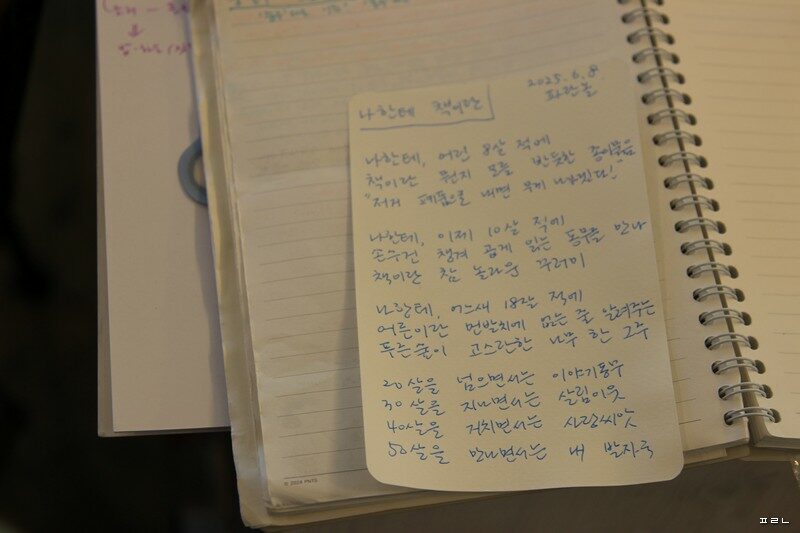 나한테 책이란
2025. 6. 8.
파란놀
나한테, 어린 8살 적에
책이란 뭔지 모를 반듯한 종이묶음
"저거 폐품으로 내면 무게 나가겠다!"
나한테, 이제 10살 적에
손수건 챙겨 곱게 읽는 동무를 만나
책이란 참 놀라운 꾸러미
나한테, 어느새 18살 적에
어른이란 먼발치에 없는 줄 알려주는
푸른숲이 고스란한 나무 한 그루
20살을 넘으면서는 이야기동무
30살을 지나면서는 살림이웃
40살을 거치면서는 사랑씨앗
50살을 만나면서는 내 발자국
© 2024 PNTS
ㅍㄹㄴ